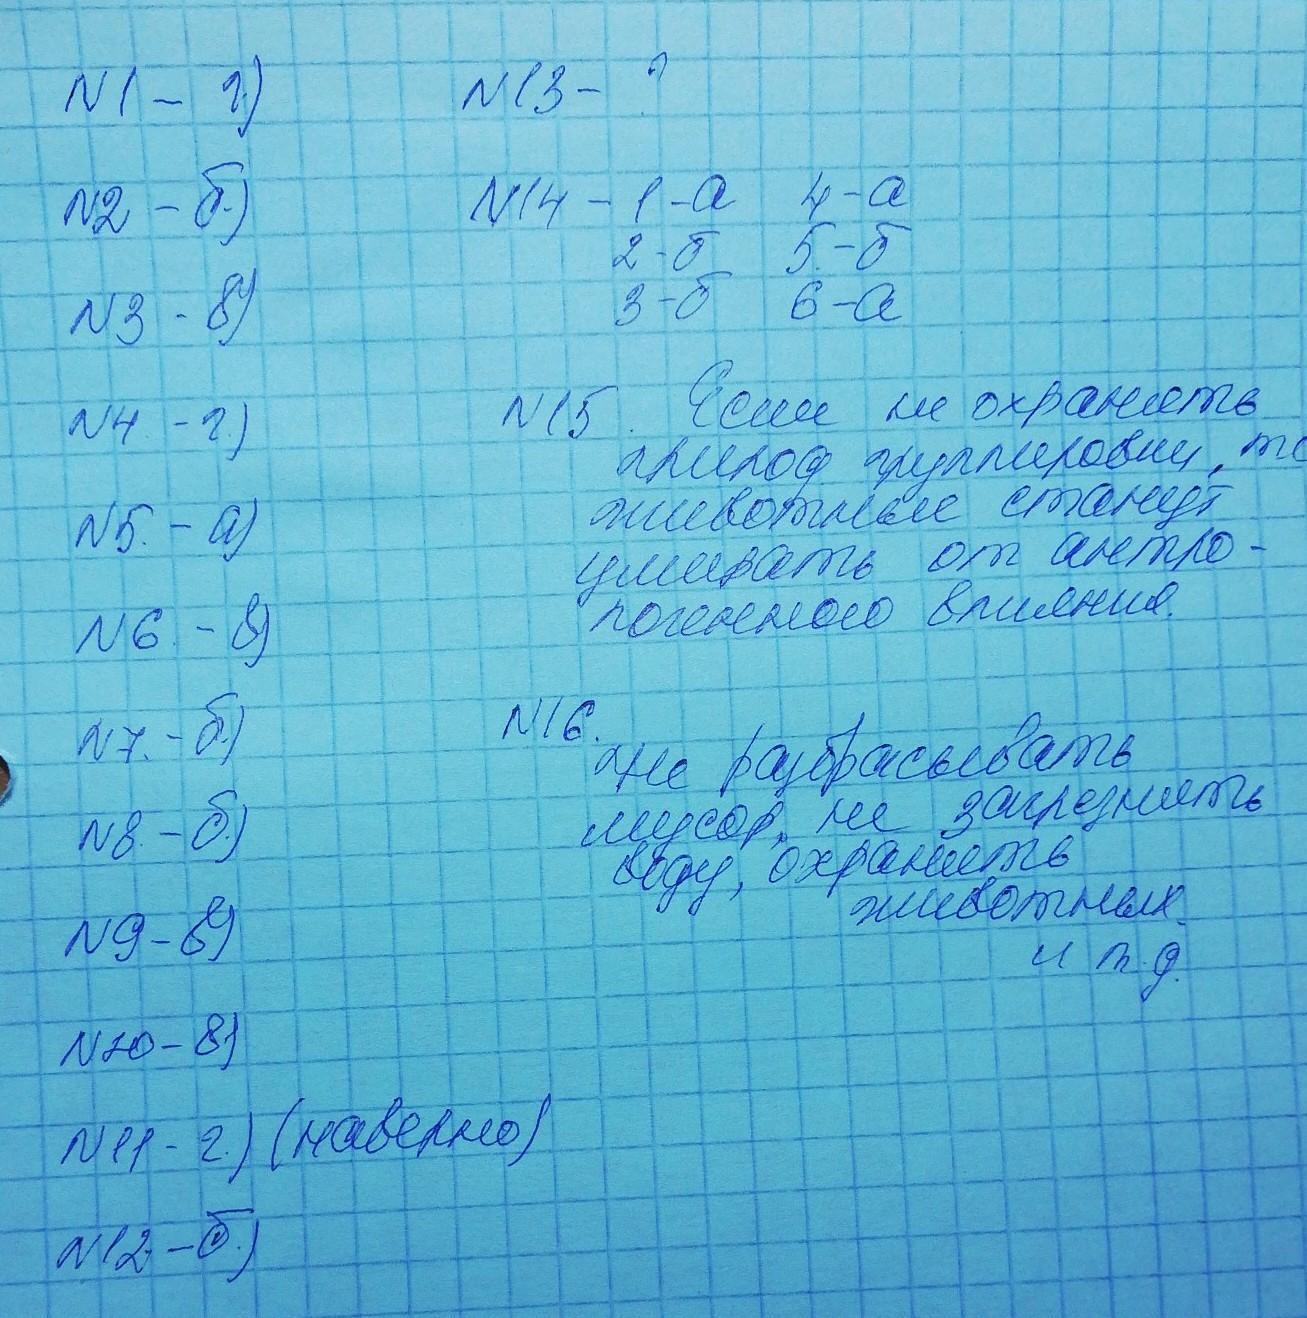 N1 - г)
N2 - б)
N3 - в)
N4 - г)
N5. - а)
N6. - в)
N7. - б)
N8. - б)
N9 - в)
N10 - в)
N11 - г) (наверно)
N12 - б.)
N13 - ?
N14 - 1-а 4-а
2-б 5-б
3-б 6-а
N15. Если не охранять
природ группировки, то
животные станут
умирать от антро-
погенного влияния.
N16.
Не разбрасывать
мусор, не загрезнять
воду, охранять
животных
и т.д.